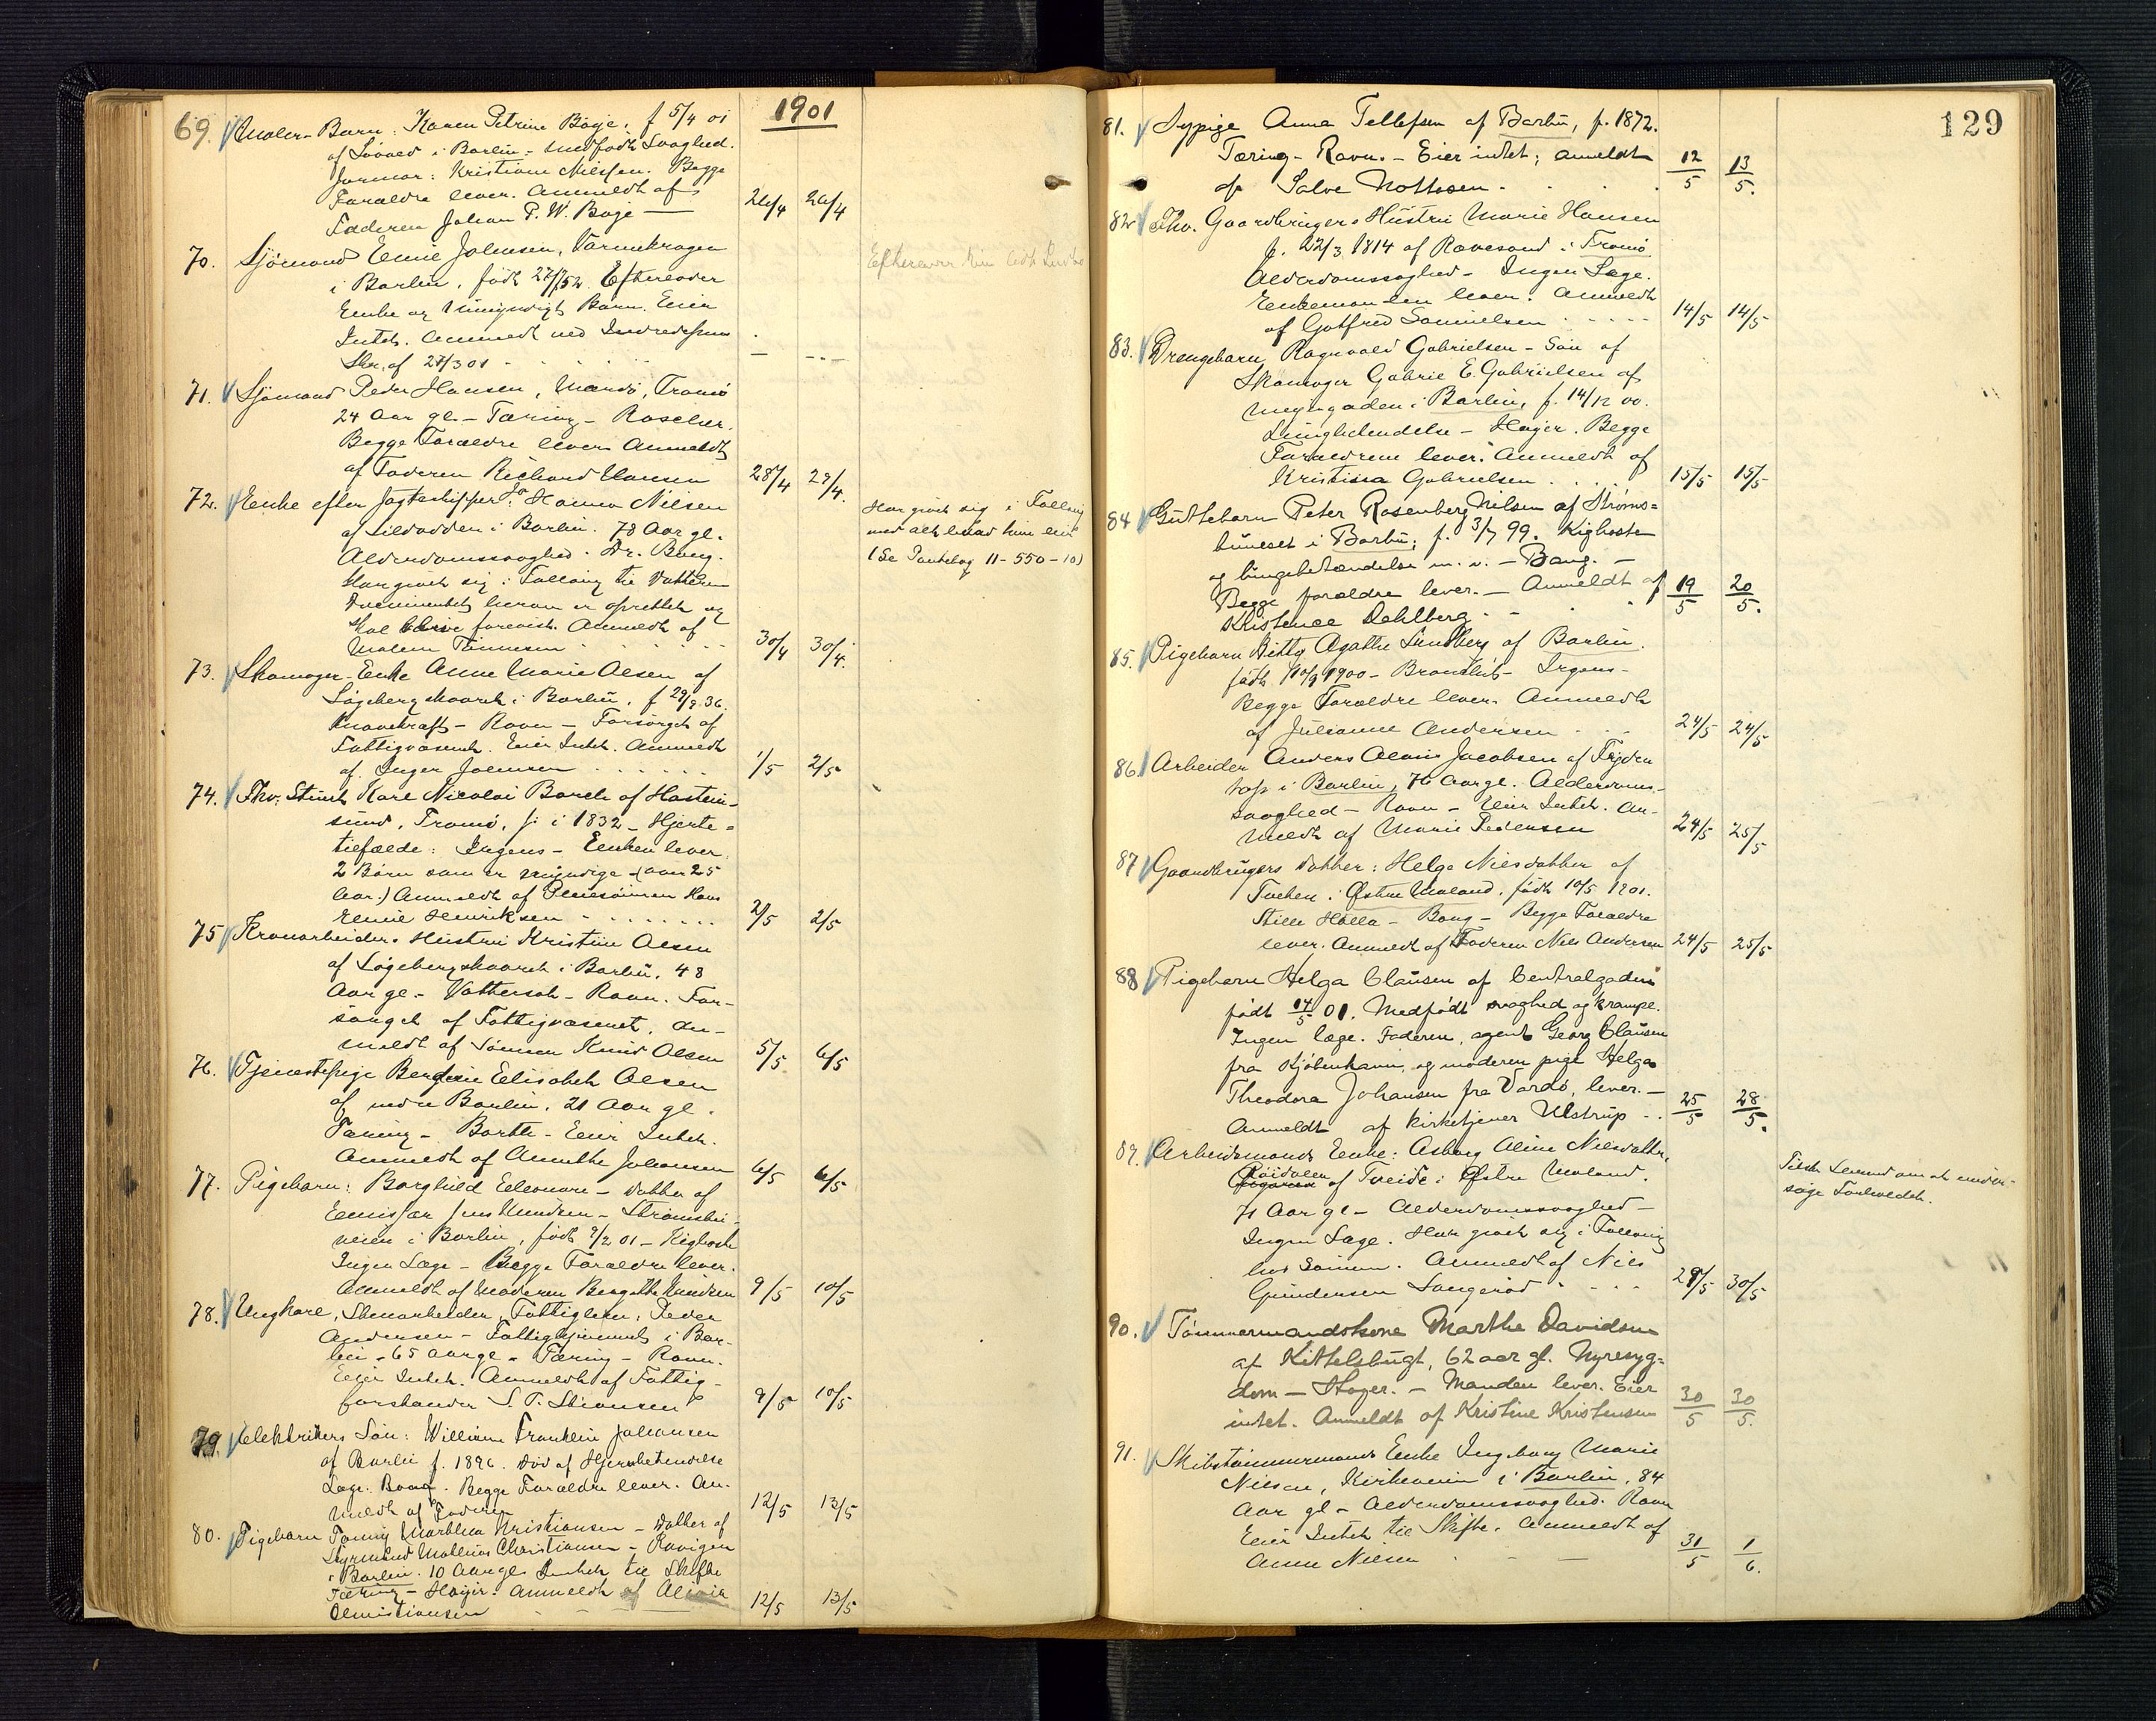 1901
69. Maler-Barn: Karen Petrine Boije, f. 5/4 01
af i Barbu - Medfødt Svaghed.
Jormor: Kristiane Nielsen. Begge
Forældre lever. Anmeldt af
Faderen Johan P. W. Boije — 26/4 26/4
70. Sjömand Emil Johnsen, Varmekrogen
i Barbu, født 27/7 52. Efterlader
Enke og Umyndigt Barn. Eier
Intet. Anmeldt ved
Skr. af 27/3 01
71. Sjömand Peder Hansen, Tromö
24 Aar gl. - Tæring - Roscher.
Begge Forældre lever. Anmeldt
af Faderen Richard Hansen 28/4 29/4.
72. Enke efter Jagteskipper Hanna Nielsen
af Sildodden i Barbu. 78 Aar gl.
Alderdomssvaghed. Dr. Bang.
Har givet sig i Follaug til Datteren
Documentet herom er oprettet og
skal blive forevist. Anmeldt af
Malene Tönnesen 30/4 30/4.
Har givet sig i Follaug
med alt hvad hun eier
(Se Pantebog 11-550-10)
73. Skomager-Enke Anne Marie Olsen af
Lögebergskaaret i Barbu, f 29/9 36.
Mavekræft - Ravn - Forsörget af
Fattigvæsenet. Eier Intet. Anmeldt
af Inger Johnsen 1/5 2/5
74. Fhv. Stuert Karl Nicolai Borch af Hastein-
sund, Tromö, f. i 1832 - Hjerte-
tilfælde: Irgens - Enken lever
2 Börn som er myndige - (over 25
Aar.) Anmeldt af Pleiesönnen Hans
Emil Henriksen 2/5 2/5
75 Kranarbeiders Hustru Kristine Olsen
af Lögebergskaaret i Barbu. 48
Aar gl. - Vattersot - Ravn. For-
sörget af Fattigvæsenet. An-
meldt af Sönnen Knud Olsen 5/5 6/5
76. Tjenestepige Bergine Elisabeth Olsen
af nedre Barbu, 21 Aar gl.
Tæring - Barth - Eier Intet.
Anmeldt af Annethe Johansen 6/5 6/5
77. Pigebarn: Borghild Eleonore - Datter af
Emissær Jens Knudsen - Strömsbu-
veien i Barbu, født 9/2 01 - Kighoste
Ingen Læge - Begge Forældre lever.
Anmeldt af Moderen Bergitte Knudsen 9/5 10/5
78. Ungkarl, Stenarbeider, Fattiglem: Peder
Andersen - Fattighjemmet i Bar-
bu - 65 Aar gl. - Tæring - Ravn.
Eier Intet. Anmeldt af Fattig-
forstander S. T. 9/5 10/5
79. Elektrikers Sön: William Franklin Johansen
af Barbu f. 1896. Död af Hjernebetændelse
Læge: Bang. Begge Forældre lever. An-
meldt af Faderen 12/5 13/5
80. Pigebarn Fanny Marthea Kristiansen - Datter af
Styrmand Mathias Christiansen - Ravigen
i Barbu. 10 Aar gl. Intet til Skifte
Tæring - Høyer. Anmeldt af
Christiansen 12/5 13/5
129
81. Sypige Anna Tellefsen af Barbu, f. 1872.
Tæring - Ravn. - Eier intet; anmeldt
af Salve Mottosen 12/5 13/5.
82 Fhv. Gaardbrugers Hustru Marie Hansen
f. 22/3 1814 af Ravesand i Tromö
Alderdomssvaghed - Ingen Læge.
Enkemanden lever. Anmeldt
af Gotfred Samuelsen 14/5 14/5
83. Drengebarn Ragnvald Gabrielsen - Sön af
Skomager Gabriel E. Gabrielsen af
Meyergaden i Barbu, f. 14/12 00.
Lungebetendelse - Høyer. Begge
Forældrene lever. Anmeldt af
Kristina Gabrielsen 15/5 15/5
84 Guttebarn Peter Rosenberg Nilsen af Strøms-
buneset i Barbu, f. 3/7 99. Kighoste
og lungebetændelse m. v. - Bang. -
Begge forældre lever. - Anmeldt af
Kristence Dahlberg 19/5 20/5.
85. Pigebarn Bitty Agathe Lundberg af Barbu.
født 10/9 1900 - Bronchit - Irgens -
Begge Forældre lever. Anmeldt
af Julianne Andersen 24/5 24/5
86. Arbeider Anders Jacobsen af
i Barbu, 76 Aar gl. Alderdoms-
svaghed - Ravn - Eier Intet. An-
meldt af Marie Pedersen 24/5 25/5
87 Gaardbrugers Datter: Helga Nielsdatter af
i Østre Moland, født 10/5 1901.
Stille Holla - Bang - Begge Forældre
lever. Anmeldt af Faderen Niels Andersen 24/5 25/5
88 Pigebarn Helga Clausen af Centralgaden
født 14/5 01. Medfødt svaghed og krampe.
Ingen læge. Faderen, agent Georg Clausen
fra Kjøbenhavn, og moderen pige Helga
Theodora Johansen fra Vardö, lever. -
Anmeldt af kirketjener Ulstrup 25/5 28/5.
89. Arbeidsmands Enke: Asborg Aline Nielsdatter,
af Tveide i Østre Moland.
71 Aar gl - Alderdomssvaghed -
Ingen Læge. Har givet sig i Follaug
hos Sönnen. Anmeldt af Niels
Gundersen Longeröd 29/5 30/5
Tilsk. Lensmd om at under-
söge Forholdet.
90. Tömmermandskone Marthe Davidsen
af Kittelsbugt, 62 aar gl. Nyresyg-
dom - Høyer. - Manden lever. Eier
intet. Anmeldt af Kristine Kristensen 30/5 30/5.
91. Skibstömmermands Enke Ingeborg Marie
Nielsen, Kirkeveien i Barbu, 84
Aar gl - Alderdomssvaghed. Ravn
Eier Intet til Skifte. Anmeldt af
Anne Nielsen 31/5 1/6.